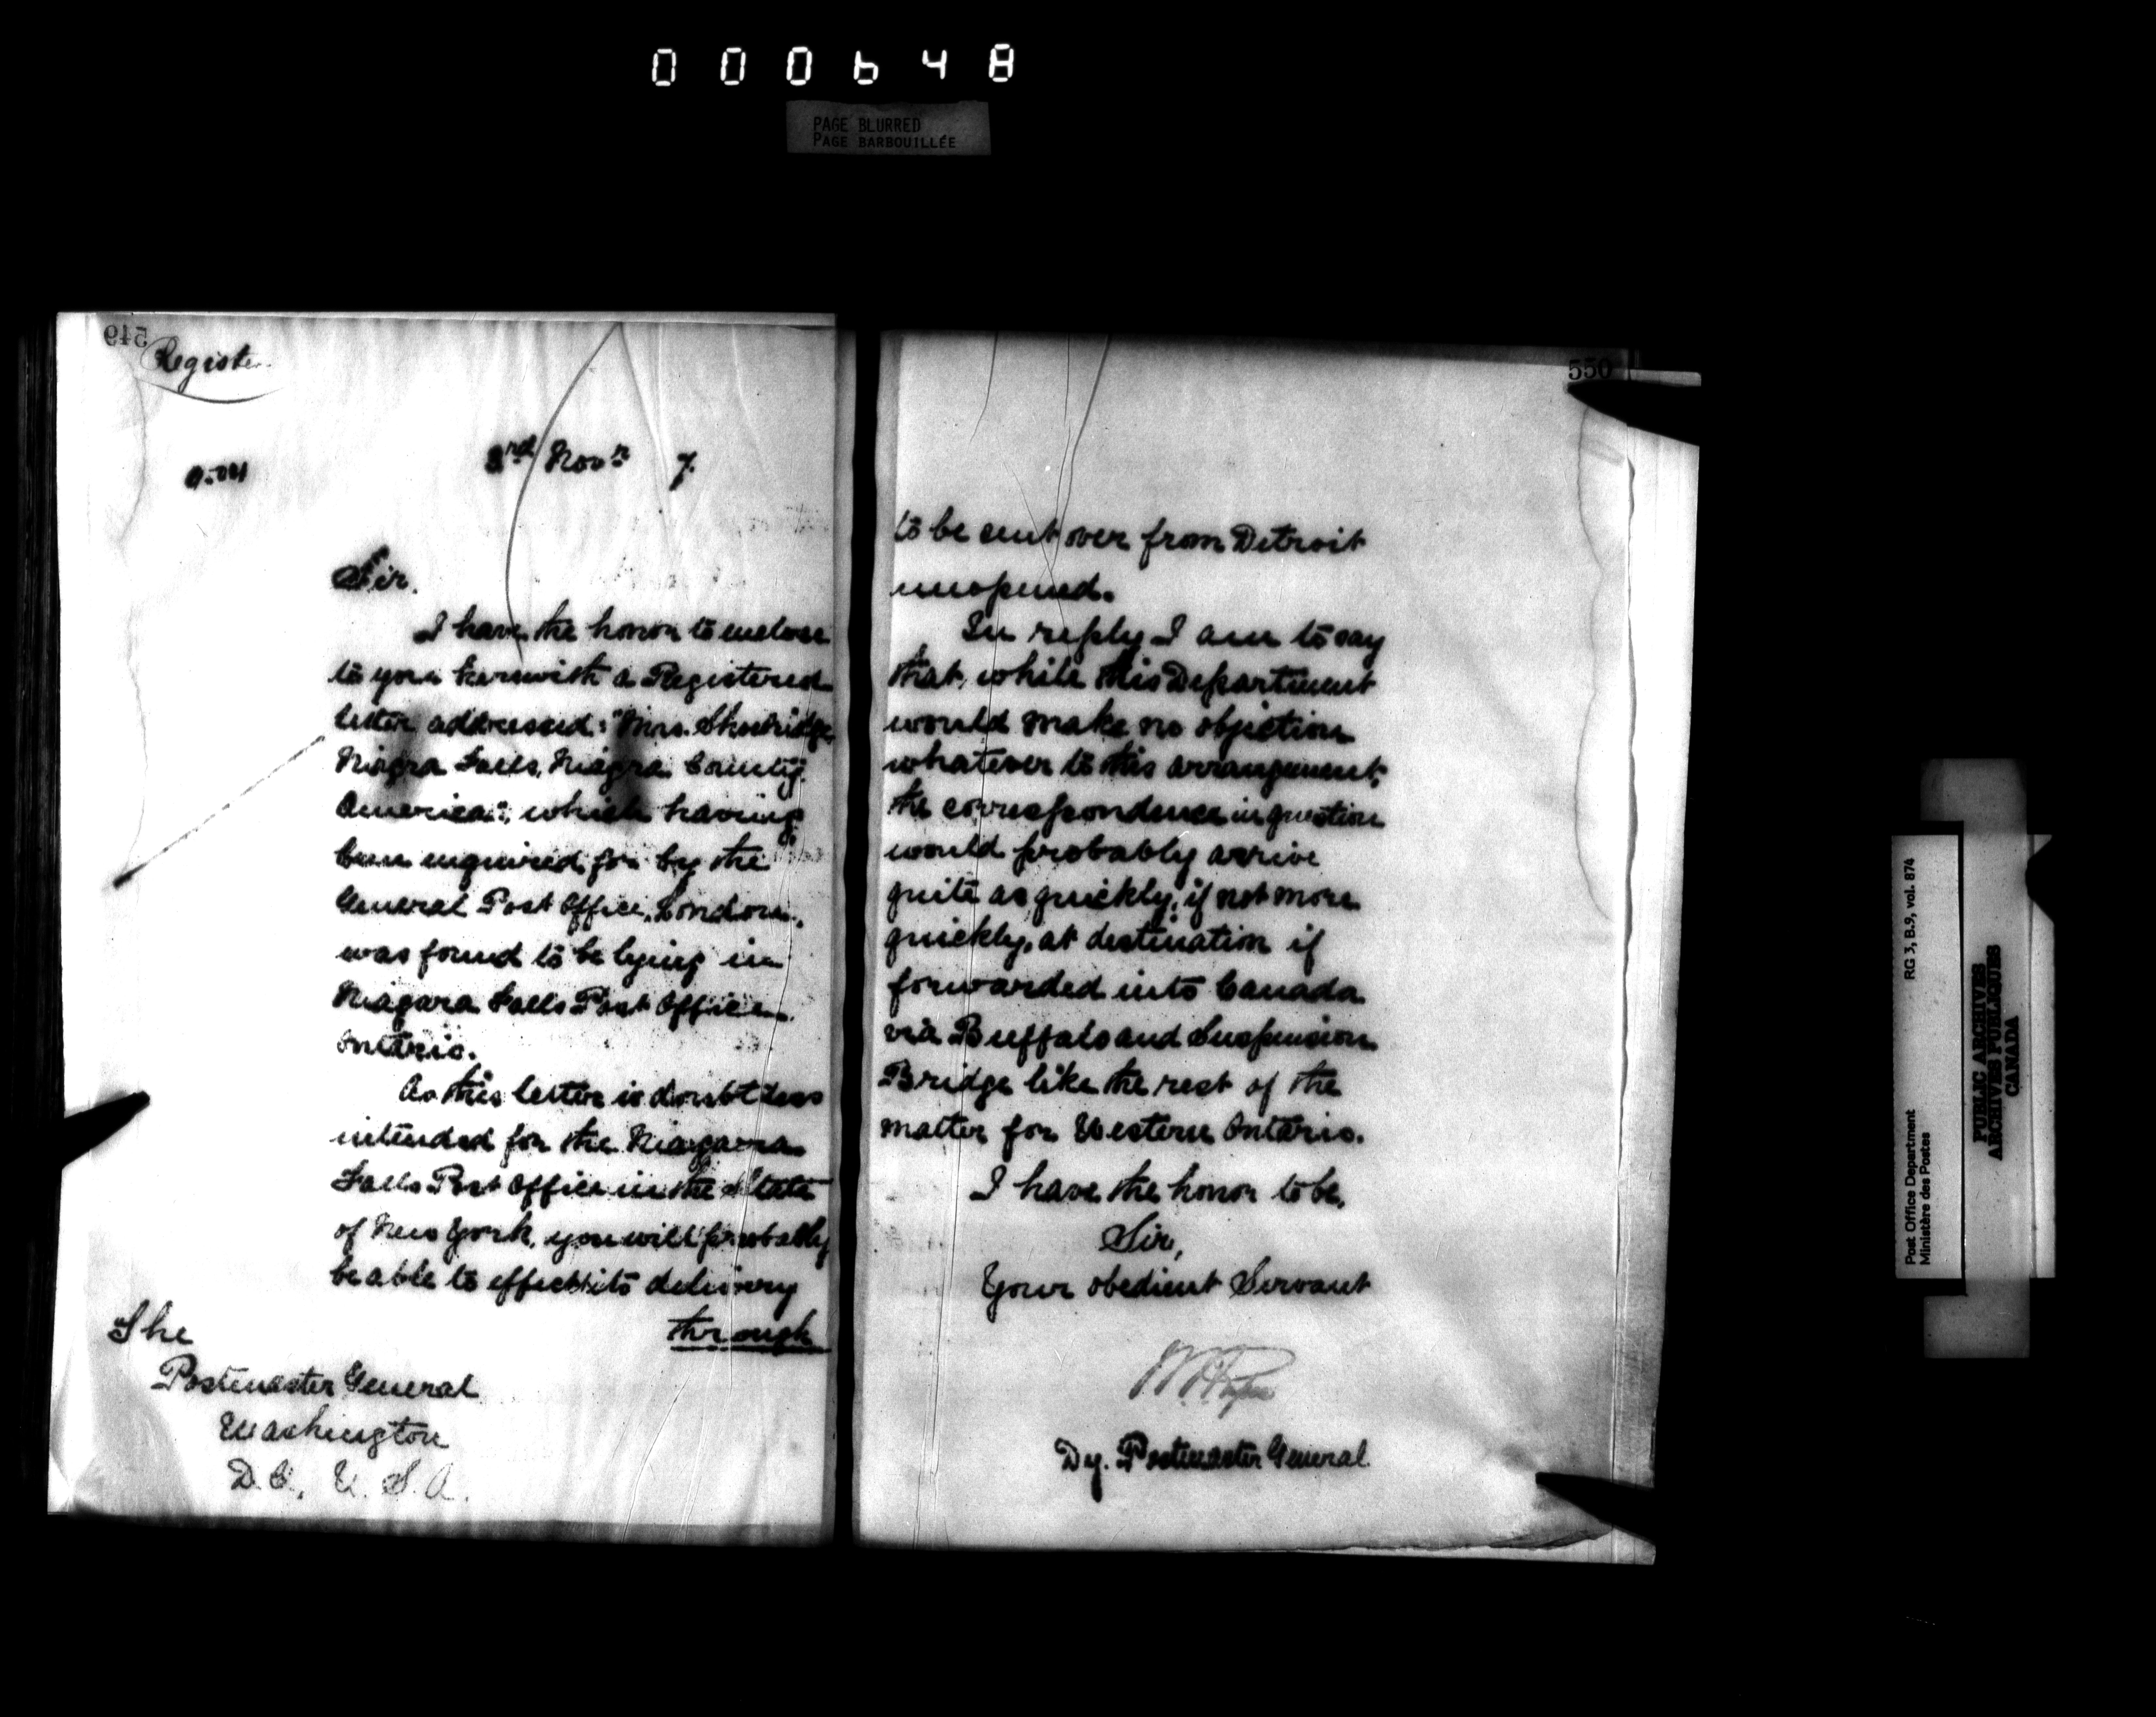 000648
PAGE BLURRED
PAGE BARBOUILLÉE
549
Register
3rd Novr 7
Sir.
I have the honor to enclose
to you herewith a Registered
letter addressed: "Mrs.
Niagra Falls, Niagra County
America"; which having
been enquired for by the
General Post Office, London,
was found to be lying in
Niagara Falls Post Office
Ontario.
As this letter is doubtless
intended for the Niagara
Falls Post Office in the State
of New York, you will probably
be able to effect its delivery
through
The
Postmaster General
Washington
D.C., U.S.A.
550
to be sent over from Detroit
unopened.
In reply I am to say
that, while this Department
would make no objection
whatever to this arrangement,
the correspondence in question
would probably arrive
quite as quickly, if not more
quickly, at destination if
forwarded into Canada
via Buffalo and Suspension
Bridge like the rest of the
matter for Western Ontario.
I have the honor to be,
Sir,
Your obedient Servant
Dy. Postmaster General
Post Office Department
Ministère des Postes
RG 3, B.9, vol. 874
PUBLIC ARCHIVES
ARCHIVES PUBLIQUES
CANADA